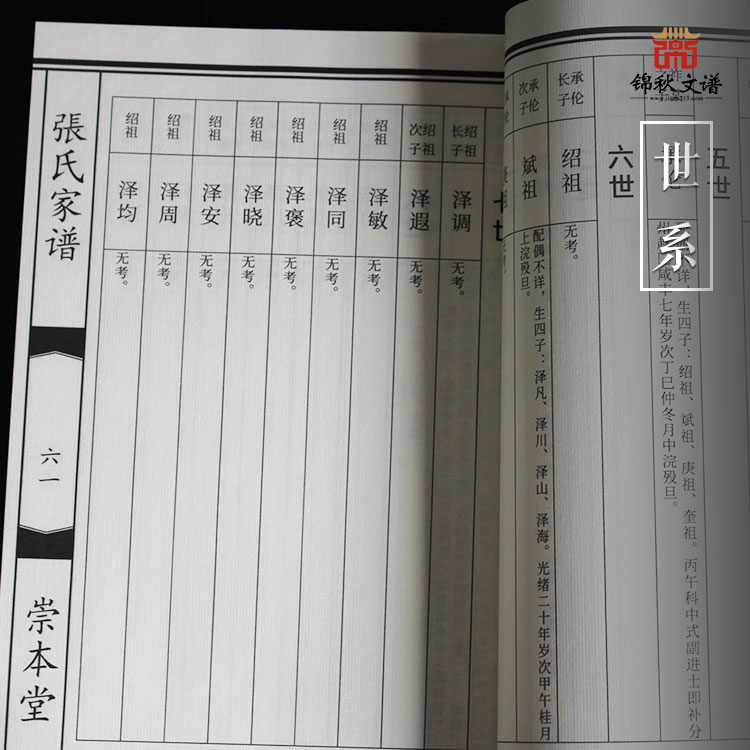 锦秋文谱
世系
五世
详，生四子：绍祖、斌祖、庚祖、奎祖。丙午科中式副进士即补分
咸丰七年岁次丁巳仲冬月中浣殁旦。
六世
承伦
长子
绍祖
无考。
承伦
次子
斌祖
配偶不详，生四子：泽凡、泽川、泽山、泽海。光绪二十年岁次甲午桂月
上浣殁旦。
绍祖
长子
泽调
无考。
绍祖
次子
泽遐
无考。
绍祖
泽敏
无考。
绍祖
泽同
无考。
绍祖
泽褒
无考。
绍祖
泽晓
无考。
绍祖
泽安
无考。
绍祖
泽周
无考。
绍祖
泽均
无考。
張氏家谱
六一
崇本堂